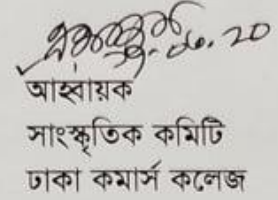 আহ্বায়ক
সাংস্কৃতিক কমিটি
ঢাকা কমার্স কলেজ